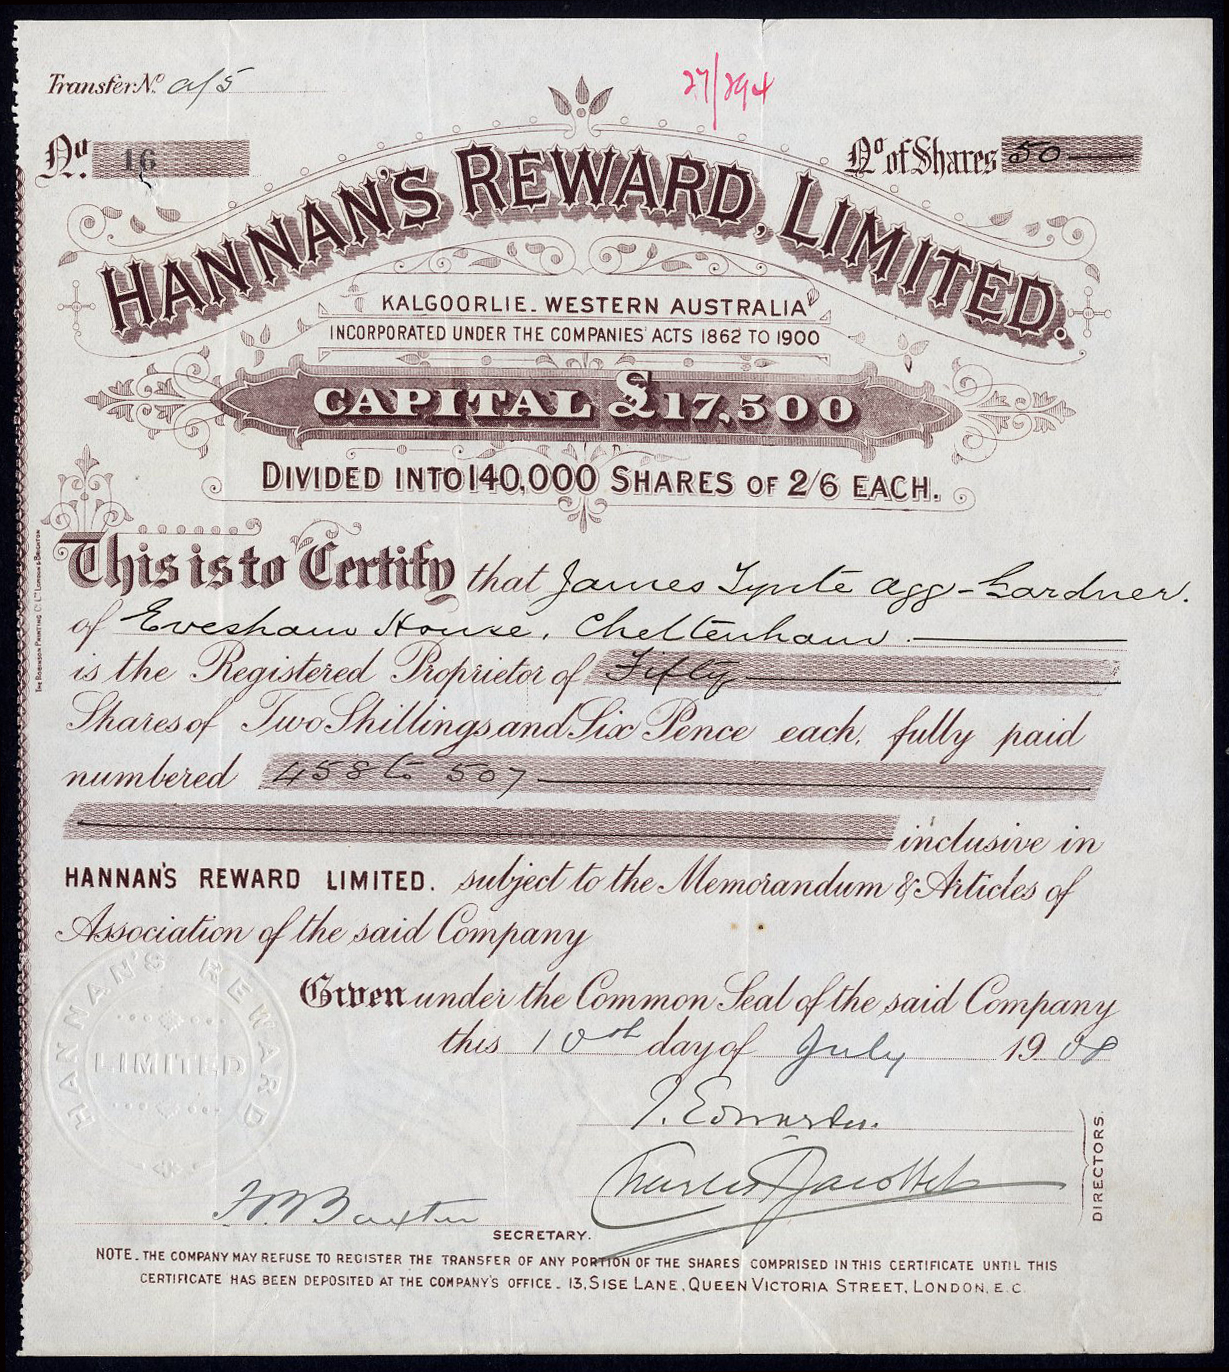 Transfer No. a/5
27/294
No. 16
No of Shares 50
HANNAN'S REWARD, LIMITED.
KALGOORLIE. WESTERN AUSTRALIA
INCORPORATED UNDER THE COMPANIES' ACTS 1862 TO 1900
CAPITAL £17,500
DIVIDED INTO 140,000 SHARES OF 2/6 EACH.
This is to Certify that James Tynte Agg-Gardner.
of Evesham House, Cheltenham
is the Registered Proprietor of Fifty
Shares of Two Shillings and Six Pence each, fully paid
numbered 458 to 507
inclusive in
HANNAN'S REWARD LIMITED. subject to the Memorandum & Articles of
Association of the said Company
Given under the Common Seal of the said Company
this 10th day of July 1908
HANNAN'S REWARD
LIMITED
DIRECTORS.
H. Baxter
SECRETARY.
NOTE. THE COMPANY MAY REFUSE TO REGISTER THE TRANSFER OF ANY PORTION OF THE SHARES COMPRISED IN THIS CERTIFICATE UNTIL THIS
CERTIFICATE HAS BEEN DEPOSITED AT THE COMPANY'S OFFICE. 13, SISE LANE, QUEEN VICTORIA STREET, LONDON, E.C.
THE ROBINSON PRINTING CO. LD. LONDON & BRIGHTON